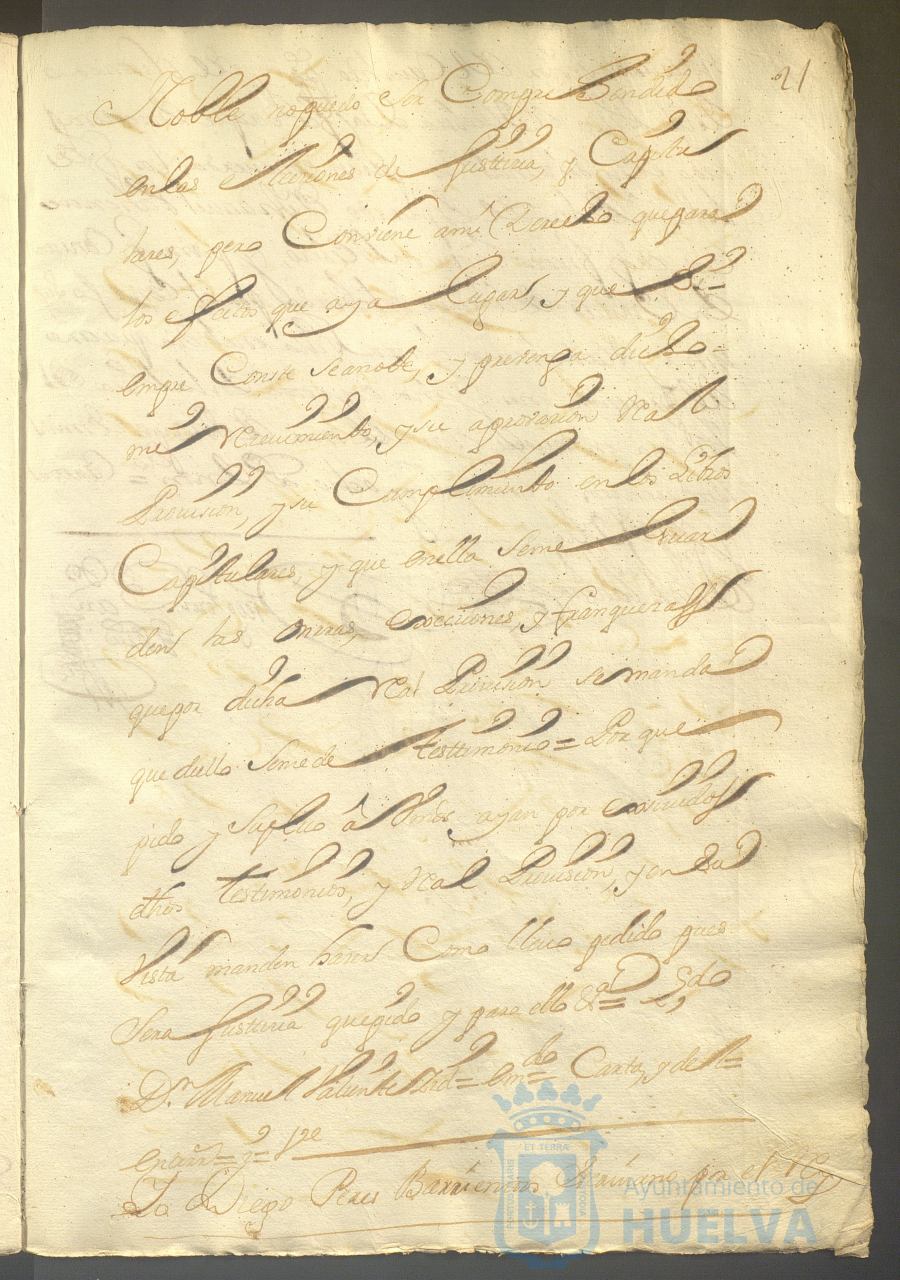 21
Noble no puedo ser Comprehendido
en las elecciones de Justicia, y Capitu
lares, pero Conviene a mi Derecho que para
los efectos que aya lugar, y que
en que Conste sea noble, y que tenga dicho
mi Recivimiento, y su aprovacion Real
Provision, y su Cumplimiento en los Libros
Capitulares, y que en ella se me guar
den las onrras, exocciones, y franquezass
que por dicha Real Provision se manda
que dello se me de testtimonio = Por que
pido y suplico â Vmds ayan por exsividoss
dhos testimonios, y Real Provision, y en su
Vista manden hacer Como llevo pedido pues
Sera Justicia que pido y para ello &a =
Dn. Manuel Valiente = Emdo = Carta, y de A=
=
Yo Diego Peres Barrientos Escrivano por el Rey
Ayuntamiento de
HUELVA
ET TERRÆ